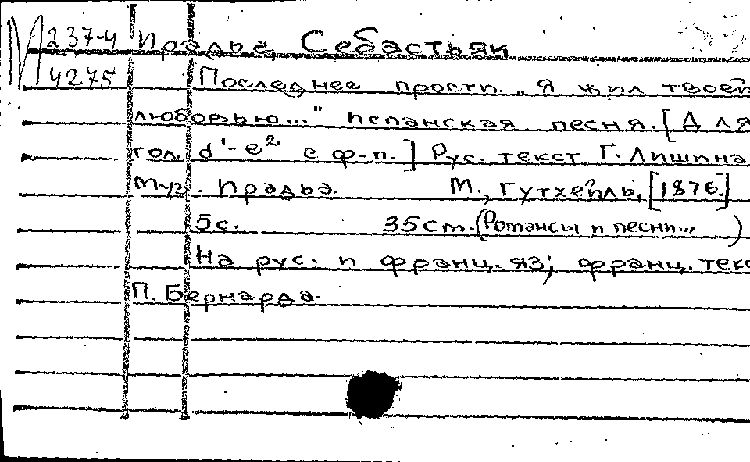 М 237-4 Ирадье, Себастьян
4275 Последнее прости. "Я жил твоей
любовью..." Испанская песня. [Для
гол. d¹-e² с ф-п.] Рус. текст Г. Лишина
Муз. Ирадье. М., Гутхейль, [1876]
5с. 35см. (Романсы и песни... )
На рус. и франц. яз; франц. текс
П. Бернарда.